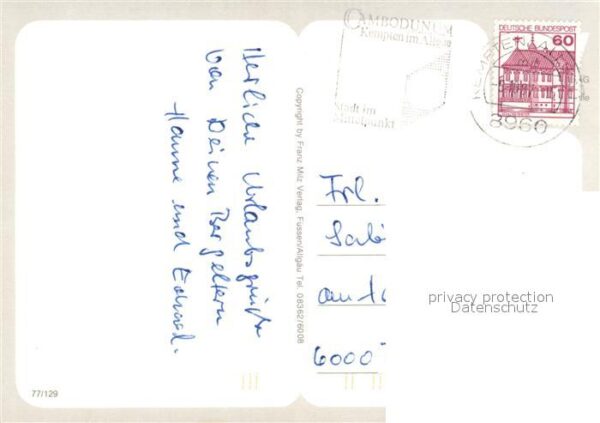 Herliche Urlaubsgrüße
von Deinen Bergeltern
Hanne und Eduard.
77/129
Copyright by Franz Milz Verlag, Füssen/Allgäu Tel. 08362/6008
CAMBODUNUM
Kempten im Allgäu
Stadt im
Mittelpunkt
DEUTSCHE BUNDESPOST
60
KEMPTEN
8960
Frl.
6000
privacy protection
Datenschutz